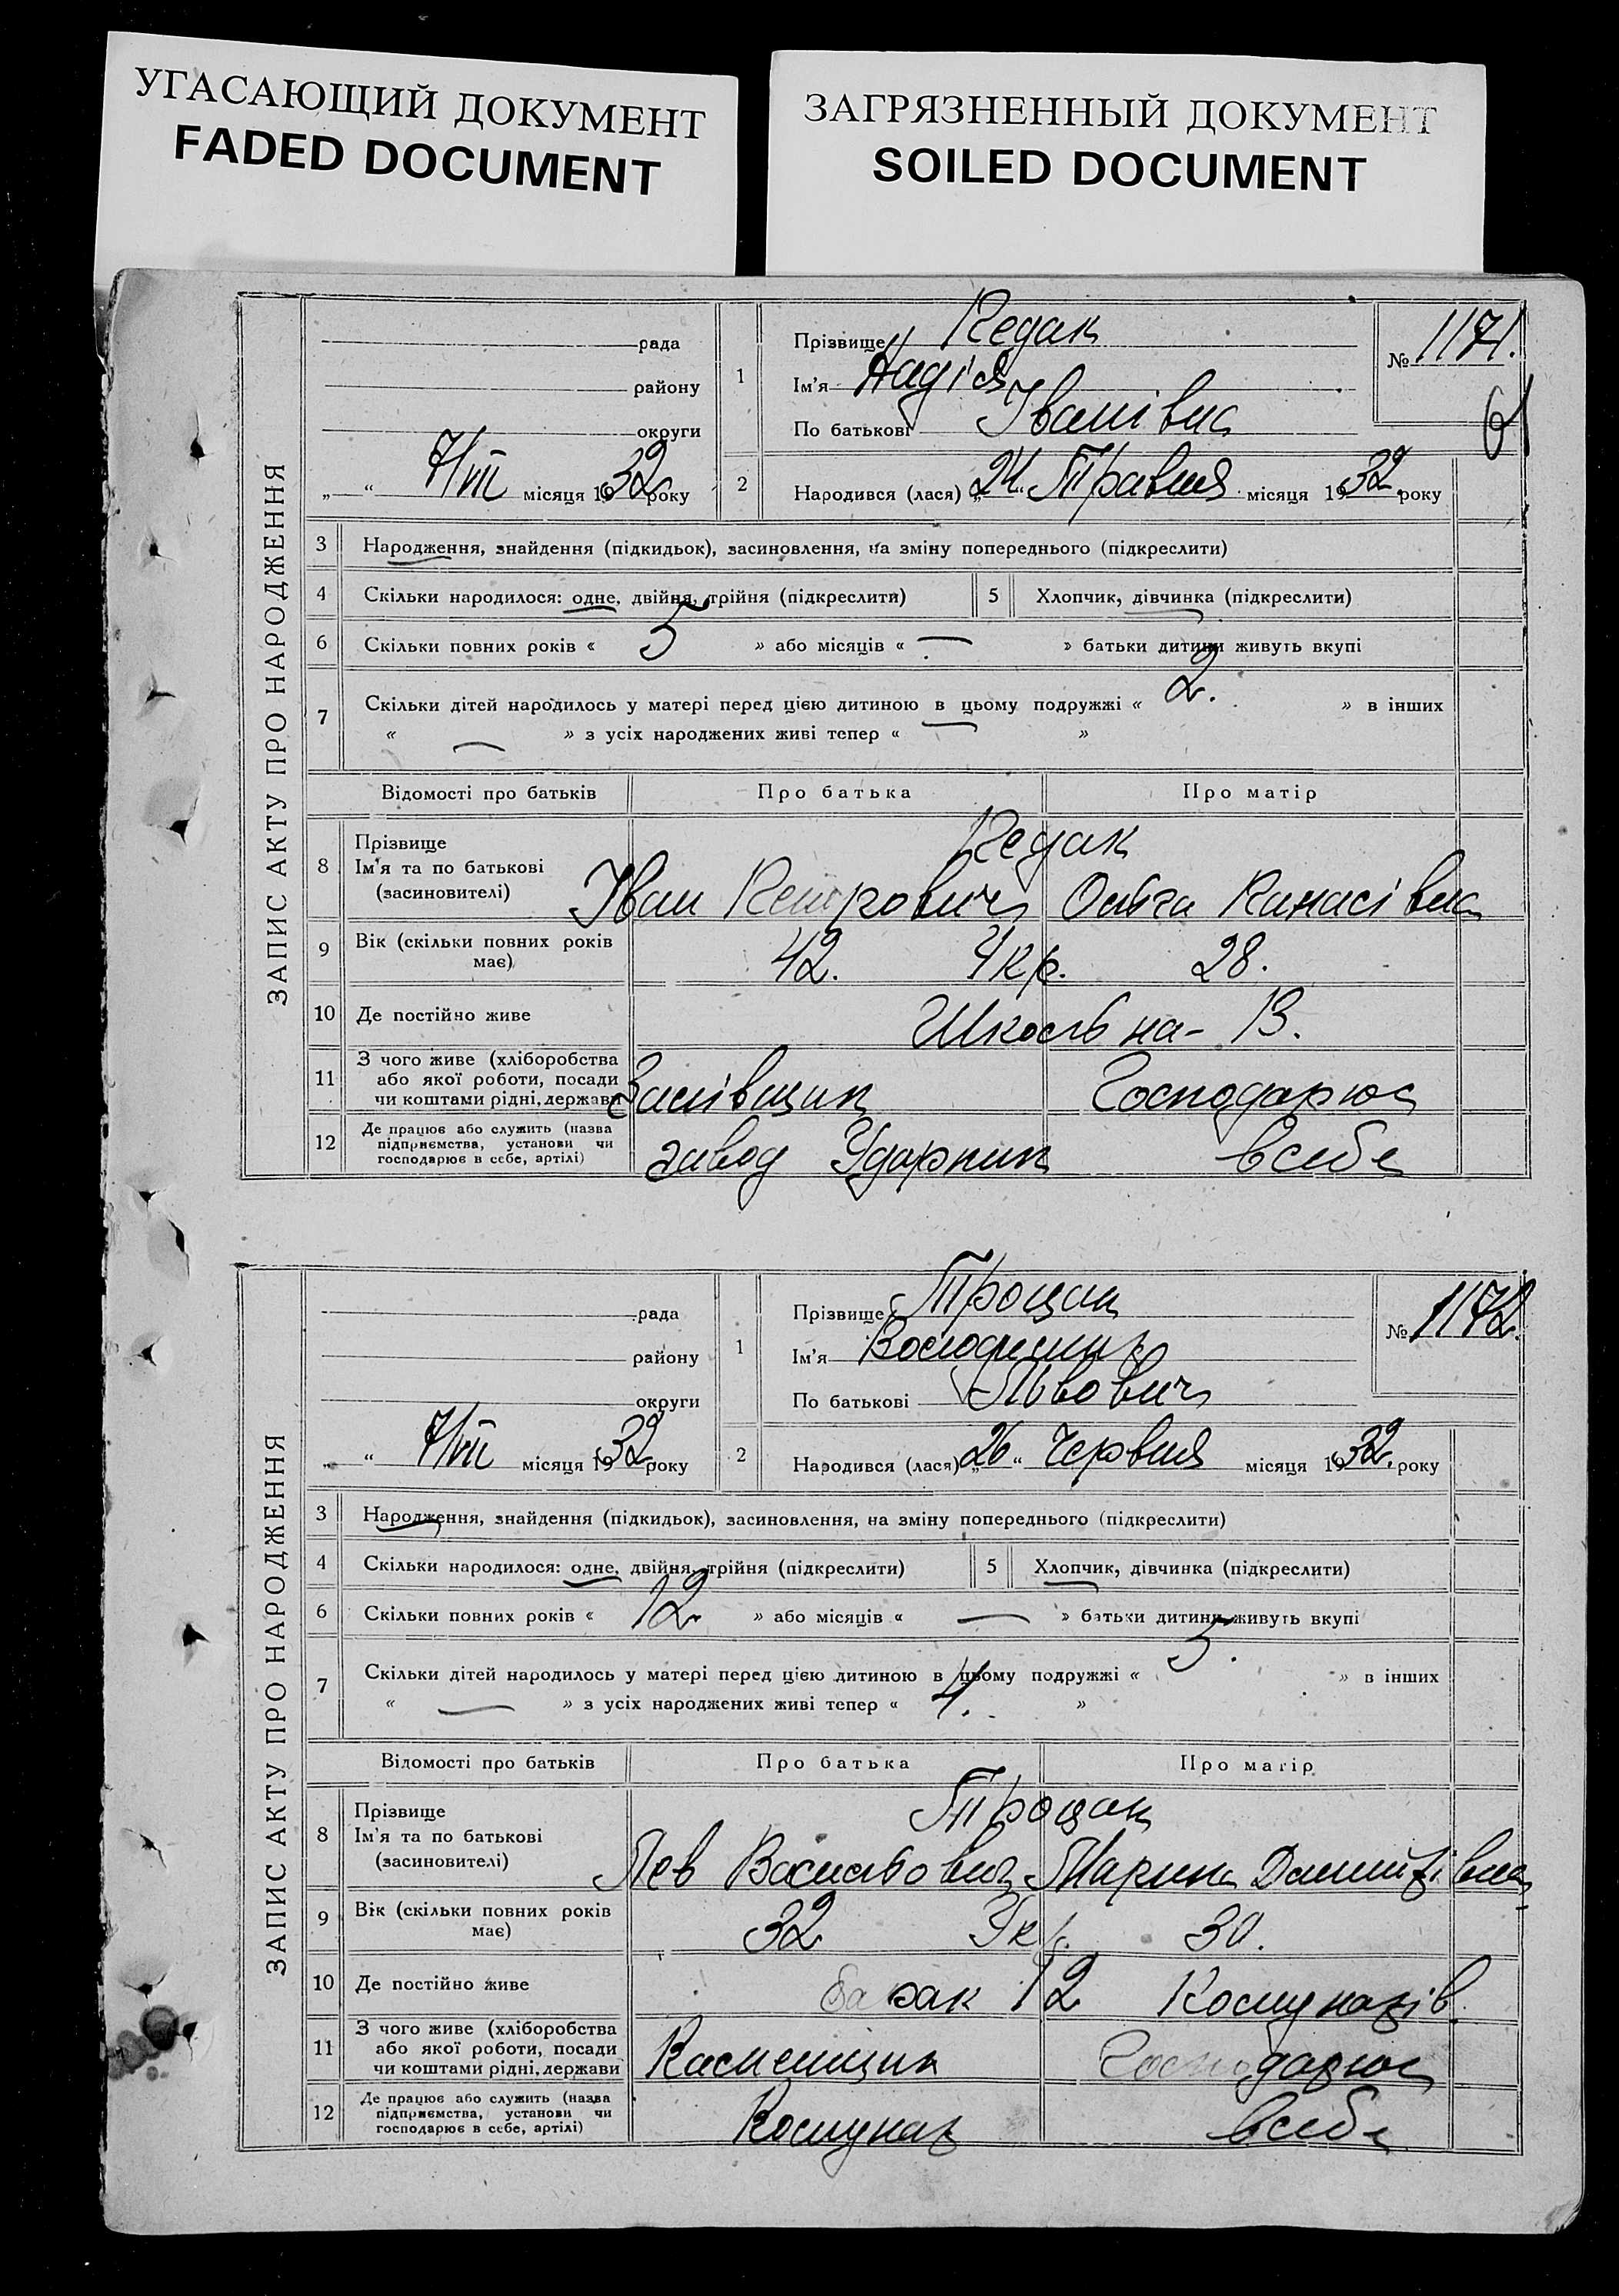 УГАСАЮЩИЙ ДОКУМЕНТ
FADED DOCUMENT
ЗАГРЯЗНЕННЫЙ ДОКУМЕНТ
SOILED DOCUMENT
ЗАПИС АКТУ ПРО НАРОДЖЕННЯ
рада
району
округи
„ “ 7/VII місяця 1932 року
1
Прізвище
Ім'я Надія
По батькові Іванівна
№ 1171.
2
Народився (лася) „24“ Травня місяця 1932 року
3 Народження, знайдення (підкидьок), засиновлення, на зміну попереднього (підкреслити)
4 Скільки народилося: одне, двійня, трійня (підкреслити) 5 Хлопчик, дівчинка (підкреслити)
6 Скільки повних років « 5 » або місяців « — » батьки дитини живуть вкупі
7 Скільки дітей народилось у матері перед цією дитиною в цьому подружжі « 2. » в інших
« — » з усіх народжених живі тепер « »
Відомості про батьків Про батька Про матір
8 Прізвище
Ім'я та по батькові
(засиновителі)
Іван Петрович Ольга
9 Вік (скільки повних років має) 42. Укр. 28.
10 Де постійно живе Шкільна- 13.
11 З чого живе (хліборобства або якої роботи, посади чи коштами рідні, держави Господарює
12 Де працює або служить (назва підприємства, установи чи господарює в себе, артілі) завод Ударник в себе
ЗАПИС АКТУ ПРО НАРОДЖЕННЯ
рада
району
округи
„ “ 7/VII місяця 1932 року
1
Прізвище Троцак
Ім'я Володимир
По батькові Львович
№ 1172.
2
Народився (лася) „26“ Червня місяця 1932. року
3 Народження, знайдення (підкидьок), засиновлення, на зміну попереднього (підкреслити)
4 Скільки народилося: одне, двійня, трійня (підкреслити) 5 Хлопчик, дівчинка (підкреслити)
6 Скільки повних років « 12. » або місяців « — » батьки дитини живуть вкупі
7 Скільки дітей народилось у матері перед цією дитиною в цьому подружжі « 5. » в інших
« — » з усіх народжених живі тепер « 4. »
Відомості про батьків Про батька Про матір
8 Прізвище
Ім'я та по батькові
(засиновителі)
Троцак
Лев Васильович Марина Данилівна
9 Вік (скільки повних років має) 32 Укр. 30.
10 Де постійно живе барак 12
11 З чого живе (хліборобства або якої роботи, посади чи коштами рідні, держави Каменщик Господарює
12 Де працює або служить (назва підприємства, установи чи господарює в себе, артілі) в себе